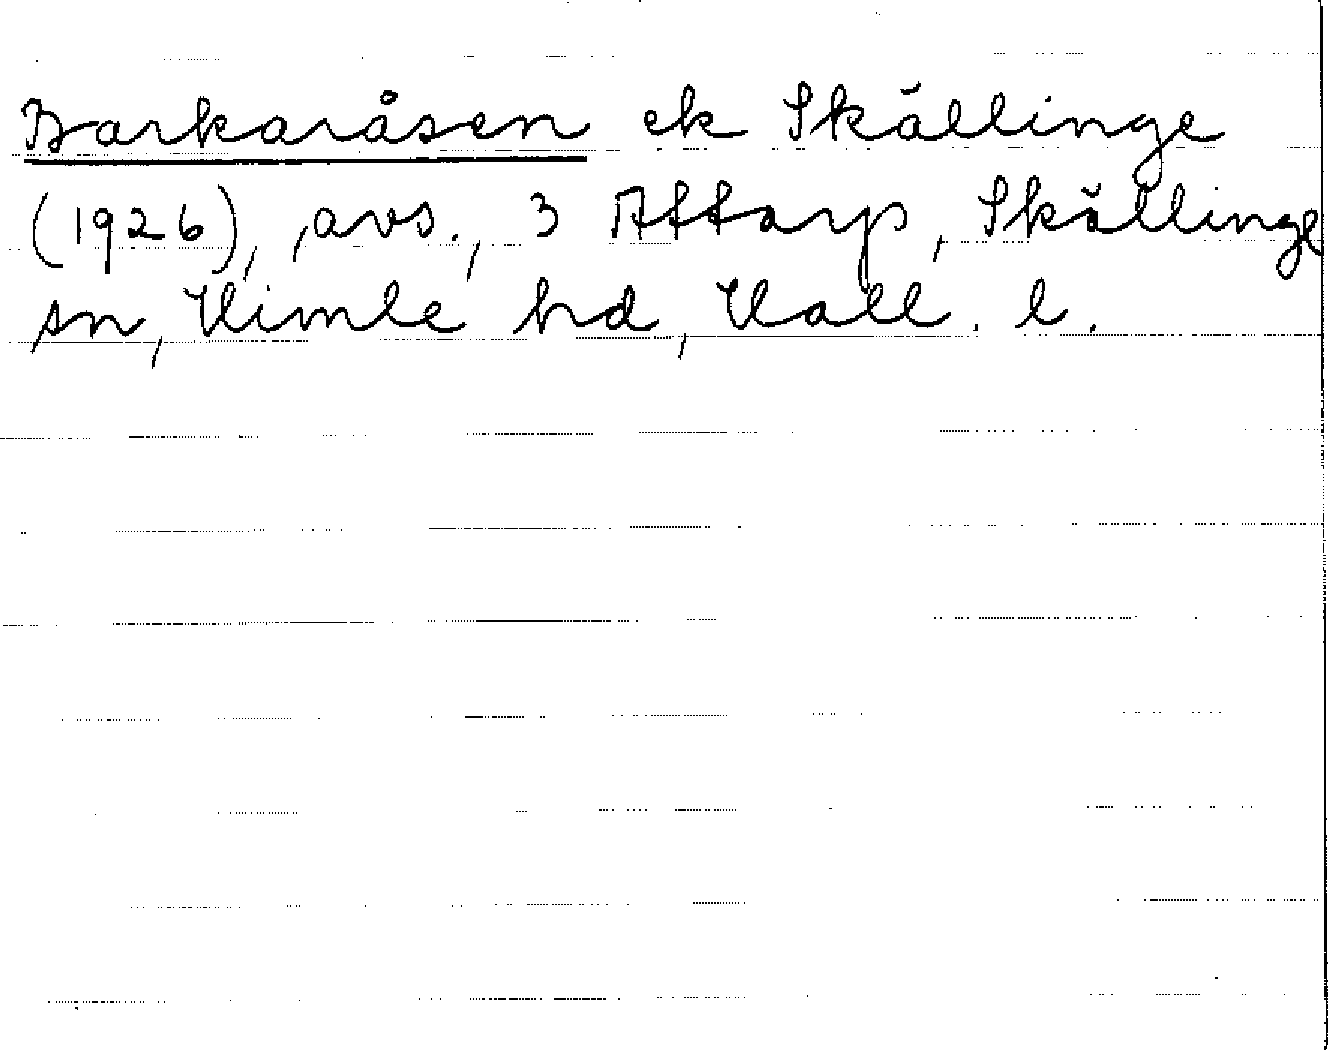 Barkaråsen ek Skällinge
(1926), ,avs., 3 Attarp, Skällinge
sn, Himle hd, Hall. l.